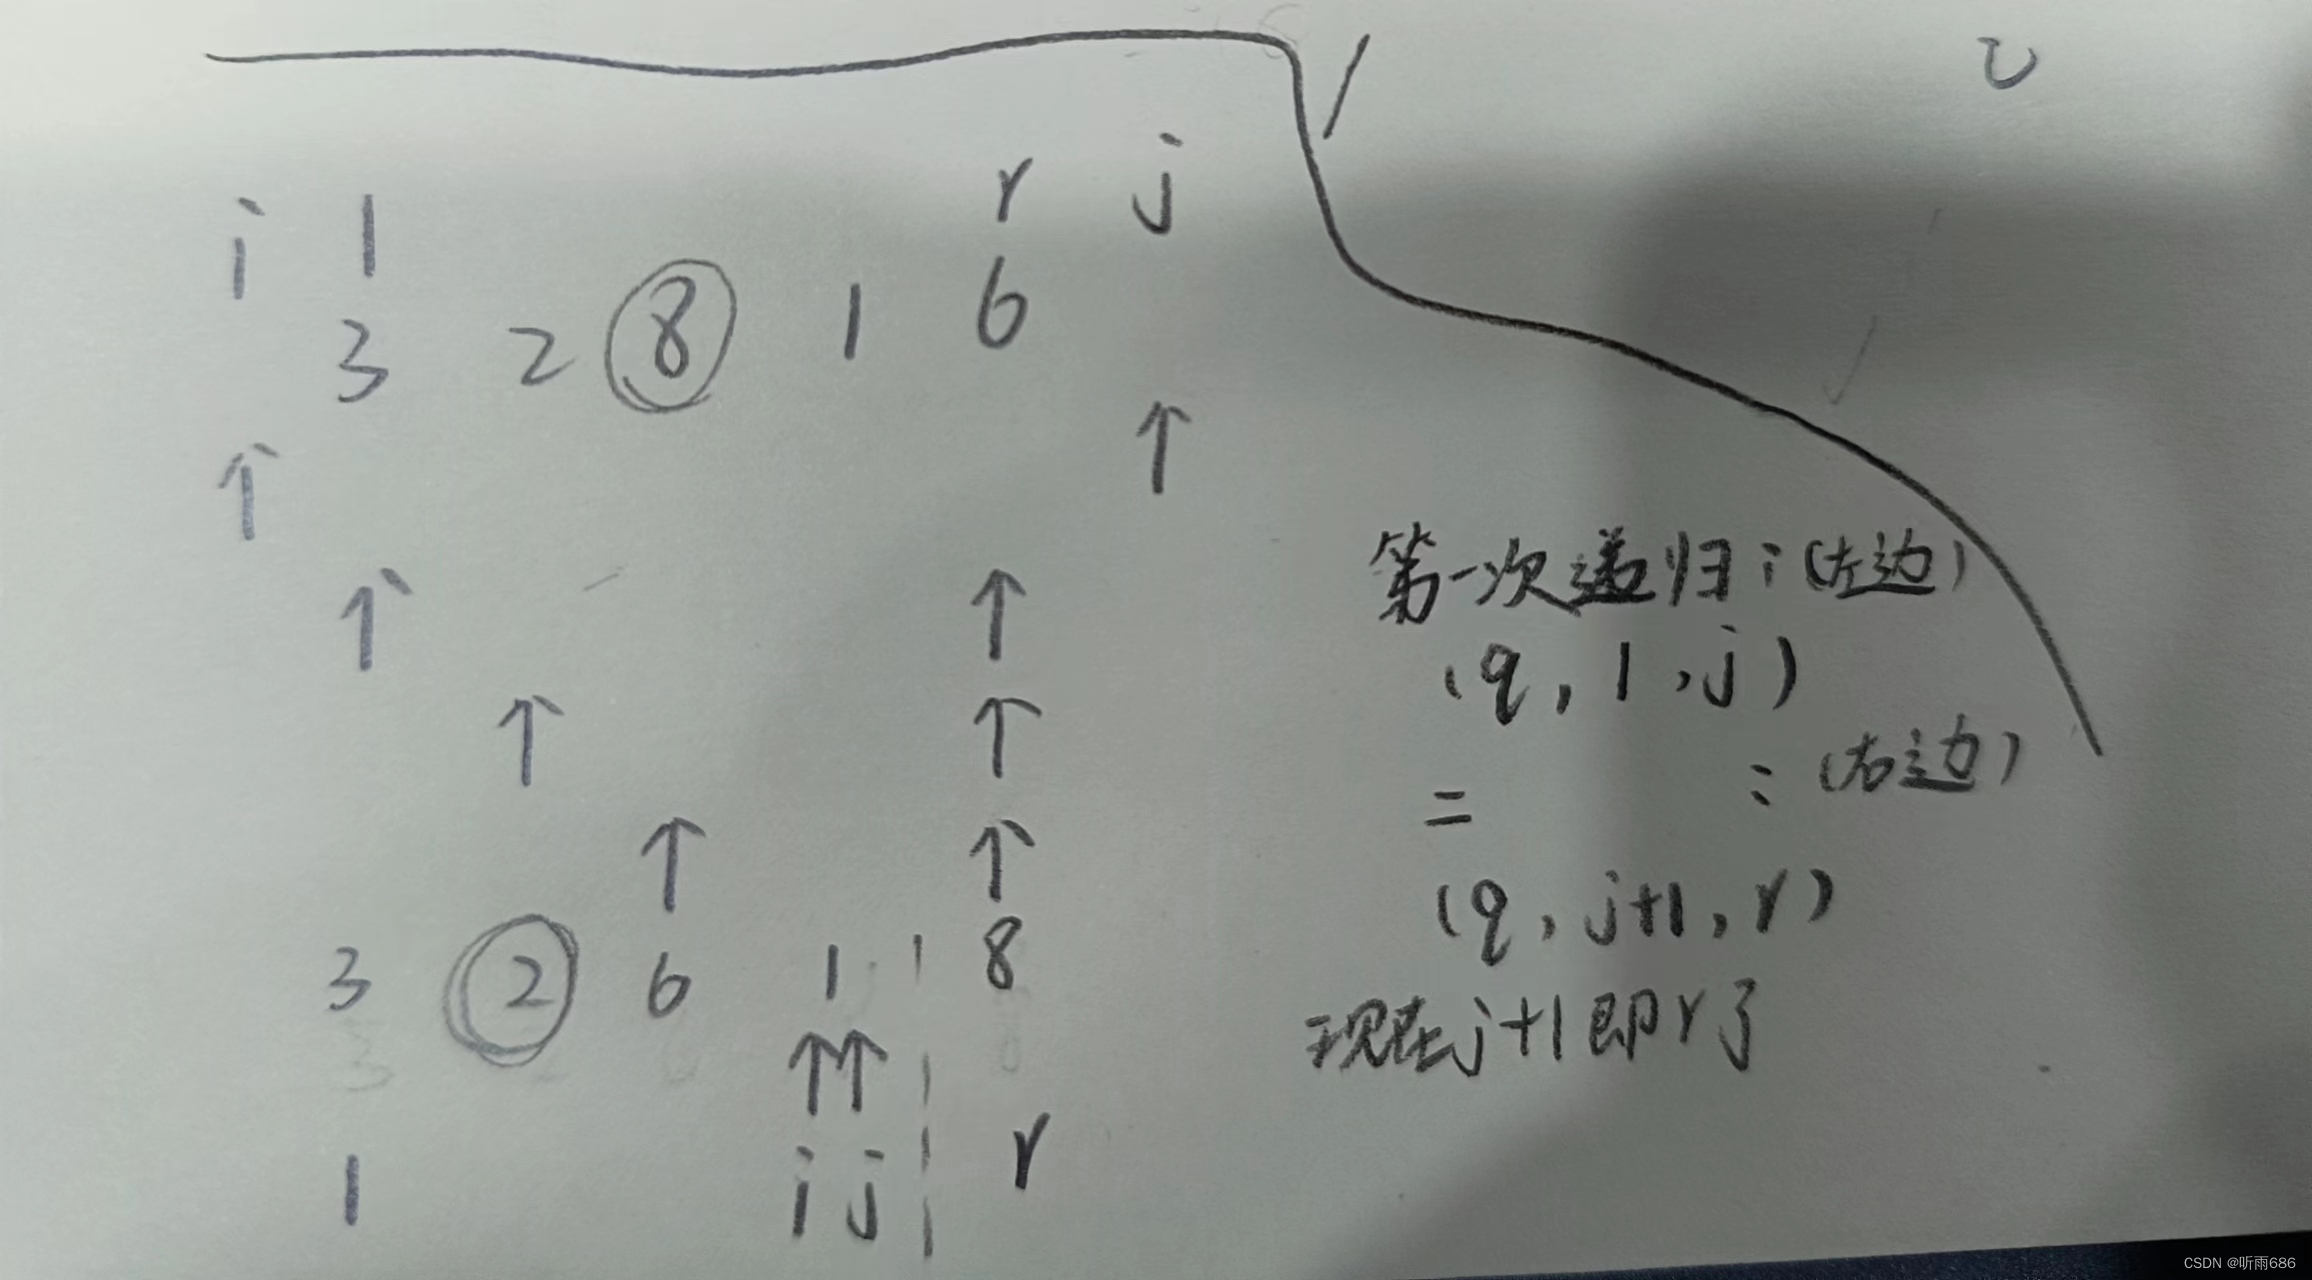 i l r j
3 2 8 1 6
↑ ↑
↑ ↑
↑ ↑
↑ ↑
3 2 6 1 8
↑↑
l i j r
第一次递归:(左边)
(q, l, j)
二 :(右边)
(q, j+1, r)
现在j+1即r了
CSDN @听雨686